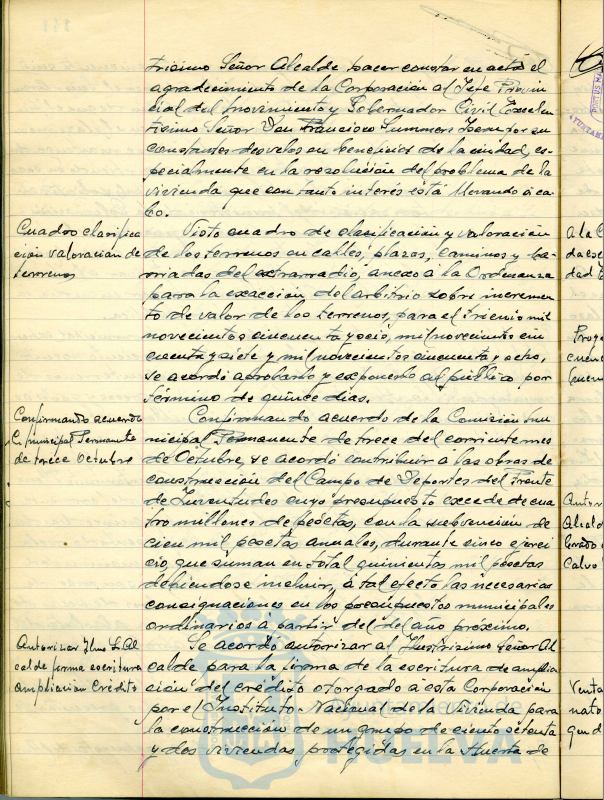 trísimo Señor Alcalde hacer constar en acta el
agradecimiento de la Corporación al Jefe Provin
cial del Movimiento y Gobernador Civil Excelen
tísimo Señor Don Francisco Summers Isern por sus
constantes desvelos en beneficio de la ciudad, es-
pecialmente en la resolución del problema de la
vivienda que con tanto interés está llevando a ca-
bo.
Cuadro clasifica
ción valoración de
terrenos
Visto cuadro de clasificación y valoración
de los terrenos en calles, plazas, caminos y ba-
rriadas del extrarradio, anexo a la Ordenanza
para la exacción del arbitrio sobre incremen
to de valor de los terrenos, para el trienio mil
novecientos cincuenta y seis, mil novecientos cin
cuenta y siete y mil novecientos cincuenta y ocho,
se acordó aprobarlo y exponerlo al público por
término de quince días.
Confirmando acuerdo
C. municipal Permanente
de trece Octubre
Confirmando acuerdo de la Comisión Mu
nicipal Permanente de trece del corriente mes
de Octubre, se acordó contribuir a las obras de
construcción del Campo de Deportes del Frente
de Juventudes cuyo presupuesto excede de cua
tro millones de pesetas, con la subvención de
cien mil pesetas anuales, durante cinco ejerci
cio, que suman en total quinientas mil pesetas
debiéndose incluir, a tal efecto las necesarias
consignaciones en los presupuestos municipales
ordinarios a partir del del año próximo.
Autorizar Ilmo Sr. Al
calde firma escritura
ampliación Crédito
Se acordó autorizar al Ilustrísimo Señor Al
calde para la firma de la escritura de amplia
ción del crédito otorgado a esta Corporación
por el Instituto Nacional de la Vivienda para
la construcción de un grupo de ciento setenta
y dos viviendas protegidas en la Huerta de
HUELVA
a la C
da es
dad
Proye
cuen
Autor
Alcald
Calvo
Venta
nato
que d